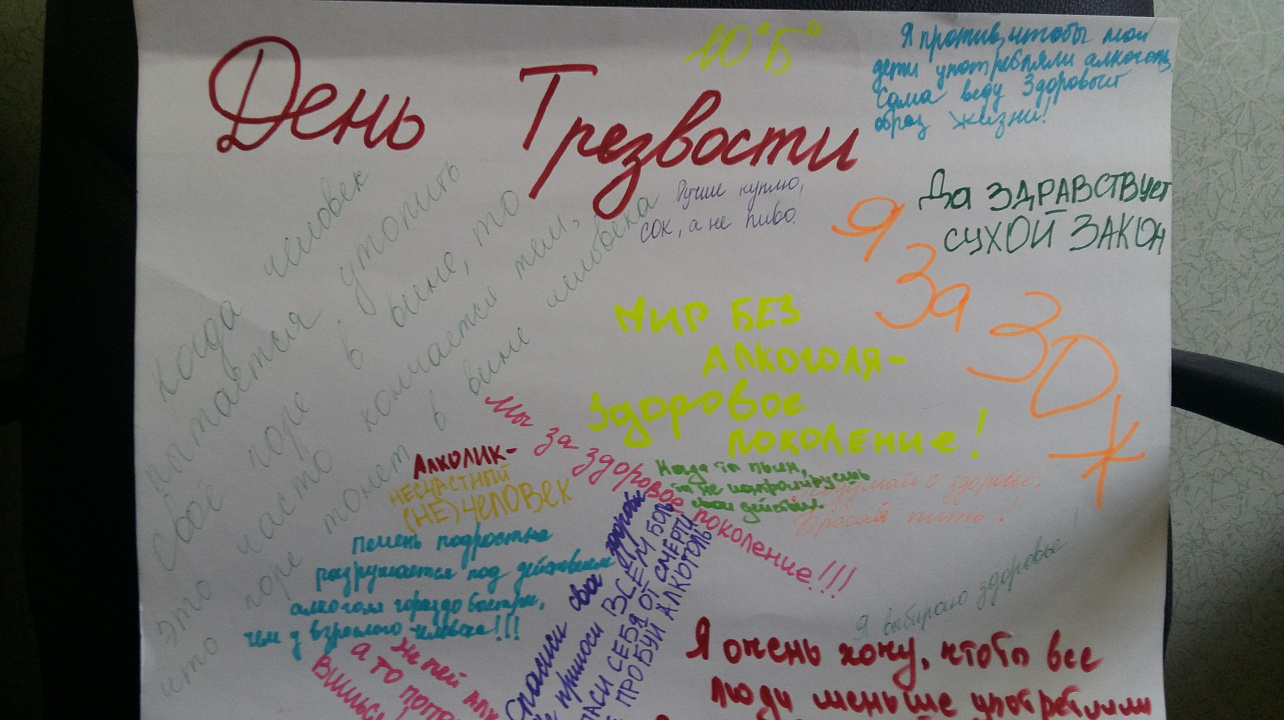 10 "Б"
День Трезвости
Я против, чтобы мои
дети употребляли алкоголь.
Сама веду Здоровый
образ жизни!
Да ЗДРАВСТВУЕТ
СУХОЙ ЗАКОН
Лучше куплю,
сок, а не пиво.
Я
За
ЗОЖ
Когда человек
пытается утопить
своё горе в вине, то
это часто кончается тем,
что горе тонет в вине человека
МИР БЕЗ
АЛКОГОЛЯ-
Здоровое
поколение!
Мы за здоровое поколение!!!
АЛКОЛИК-
НЕСЧАСТНЫЙ
(НЕ)ЧЕЛОВЕК
Когда ты пьян,
ты не контролируешь
свои действия.
Подумай о здоровье.
Бросай пить!
Печень подростка
разрушается под действием
алкоголя гораздо быстрее,
чем у взрослого человека!!!
Спаси своё здоровье
Не приноси ВСЕМ БОЛЬ
СПАСИ СЕБЯ ОТ СМЕРТИ
НЕ ПРОБУЙ АЛКОГОЛЬ
Не пей
а то
Я выбираю здоровье
Я очень хочу, чтобы все
люди меньше употребляли